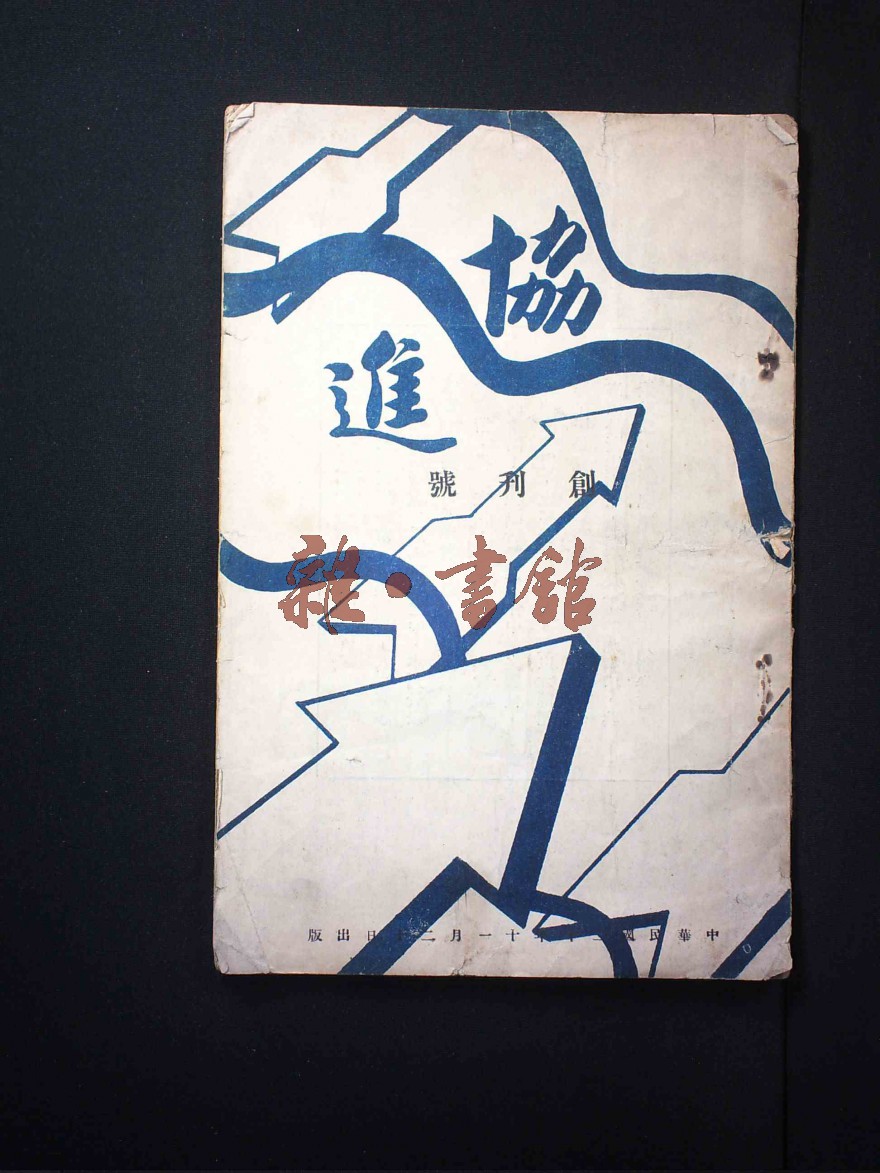 協進
創刊號
雜·書館
中華民國二十年十一月二十日出版